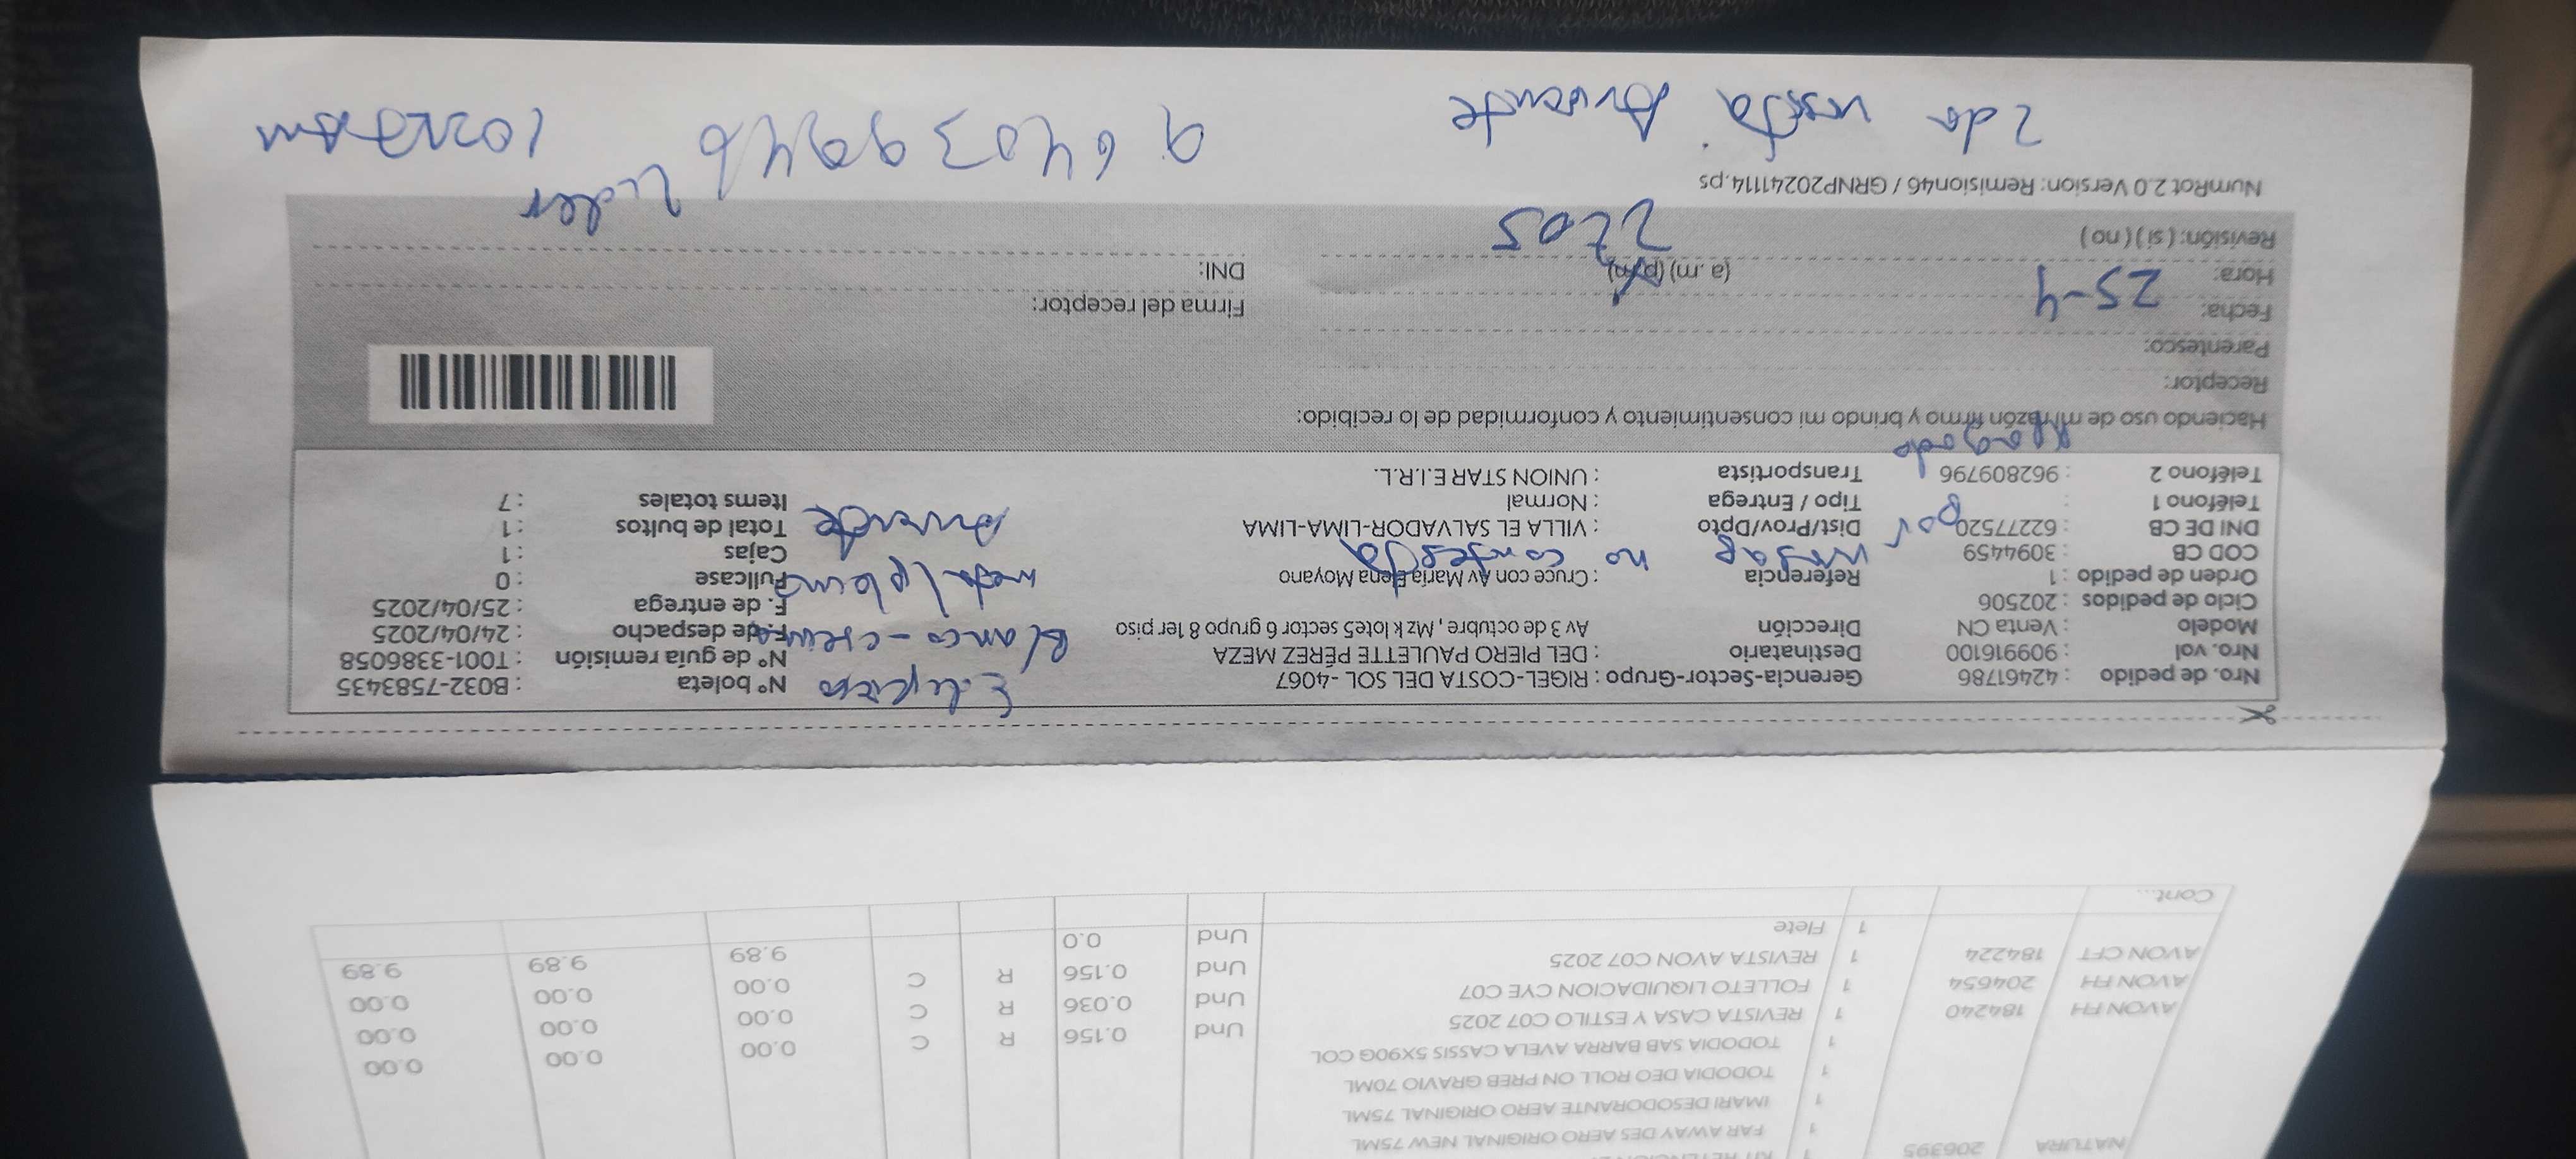 NATURA 206395 1
1 FAR AWAY DES AERO ORIGINAL NEW 75ML
1 IMARI DESODORANTE AERO ORIGINAL 75ML
1 TODODIA DEO ROLL ON PREB GRAVIO 70ML
1 TODODIA SAB BARRA AVELA CASSIS 5X90G COL
AVON FH 184240 1 REVISTA CASA Y ESTILO C07 2025 Und 0.156 R C 0.00 0.00 0.00
AVON FH 204654 1 FOLLETO LIQUIDACION CYE C07 Und 0.036 R C 0.00 0.00 0.00
AVON CFT 184224 1 REVISTA AVON C07 2025 Und 0.156 R C 0.00 0.00 0.00
1 Flete Und 0.0 9.89 9.89 9.89
Cont...
Nro. de pedido : 42461786 Gerencia-Sector-Grupo : RIGEL-COSTA DEL SOL -4067 N° boleta : B032-7583435
Nro. vol : 909916100 Destinatario : DEL PIERO PAULETTE PÉREZ MEZA N° de guía remisión : T001-3386058
Modelo : Venta CN Dirección Av 3 de octubre, Mz k lote5 sector 6 grupo 8 1er piso F. de despacho : 24/04/2025
Ciclo de pedidos : 202506 F. de entrega : 25/04/2025
Orden de pedido : 1 Referencia : Cruce con Av María Elena Moyano Fullcase : 0
COD CB : 3094459 Cajas : 1
DNI DE CB : 62277520 Dist/Prov/Dpto : VILLA EL SALVADOR-LIMA-LIMA Total de bultos : 1
Teléfono 1 : Tipo / Entrega : Normal Items totales : 7
Teléfono 2 : 962809796 Transportista : UNION STAR E.I.R.L.
Blanco - crema
no contesta
Ausente
por
apagado
Haciendo uso de mi razón firmo y brindo mi consentimiento y conformidad de lo recibido:
Receptor:
Parentesco:
Fecha: 25-4 Firma del receptor:
Hora: (a .m) (p.m) DNI:
Revisión: ( si ) ( no ) 2205
NumRot 2.0 Version: Remision46 / GRNP20241114.ps
Lider
2da visita Ausente 964039946